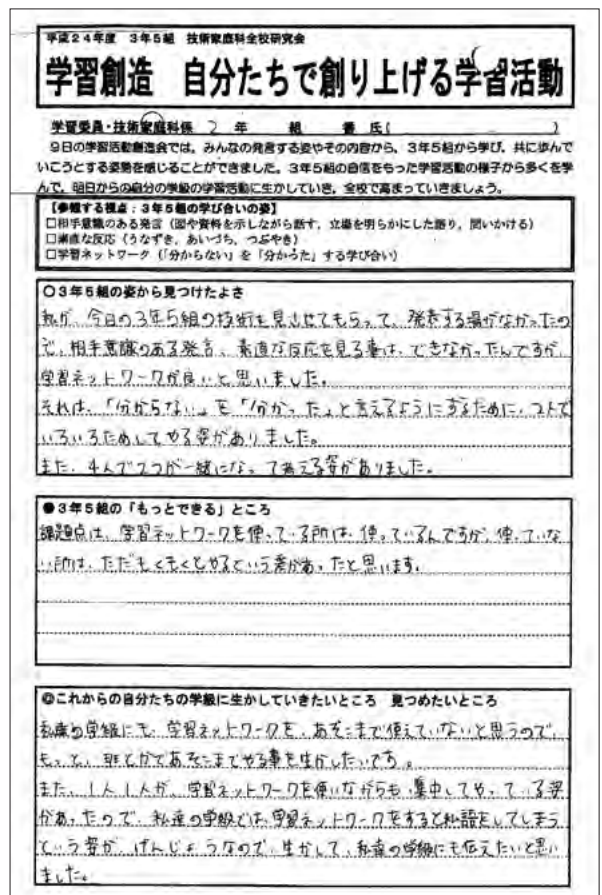 平成24年度 3年5組 技術家庭科全校研究会
学習創造 自分たちで創り上げる学習活動
学習委員・技術家庭科係 2 年 組 番 氏( )
9日の学習活動創造会では、みんなの発言する姿やその内容から、3年5組から学び、共に歩んで
いこうとする姿勢を感じることができました。3年5組の自信をもった学習活動の様子から多くを学
んで、明日からの自分の学級の学習活動に生かしていき、全校で高まっていきましょう。
【参観する視点:3年5組の学び合いの姿】
□相手意識のある発言(図や資料を示しながら話す、立場を明らかにした語り、問いかける)
□素直な反応(うなずき、あいづち、つぶやき)
□学習ネットワーク(「分からない」を「分かった」する学び合い)
○3年5組の姿から見つけたよさ
私が、今日の3年5組の技術を見させてもらって、発表する場がなかったの
で、相手意識のある発言、素直な反応を見る事は、できなかったんですが、
学習ネットワークが良いと思いました。
それは、「分からない」を「分かった」と言えるようにするために、2人で
いろいろためしてやる姿がありました。
また、4人で2つが一緒になって考える姿がありました。
●3年5組の「もっとできる」ところ
課題点は、学習ネットワークを使っている所は、使っているんですが、使っていな
い所は、ただもくもくとやるという差があったと思います。
◎これからの自分たちの学級に生かしていきたいところ 見つめたいところ
私達の学級にも、学習ネットワークを、あそこまで使えていないと思うので、
もっと、班とかであそこまでやる事を生かしたいです。
また、1人1人が、学習ネットワークを使いながらも、集中してやっている姿
があったので、私達の学級では、学習ネットワークをすると私語をしてしまう
という姿が、げんじょうなので、生かして、私達の学級にも伝えたいと思い
ました。